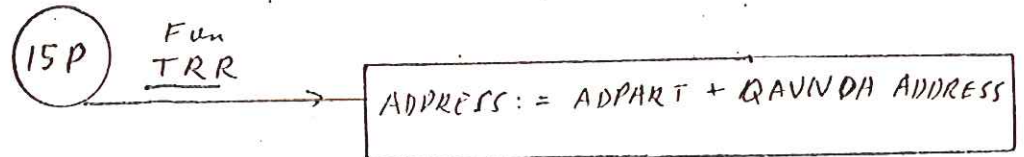 15P
Fun
TRR
ADDRESS := ADPART + QAVNDA ADDRESS